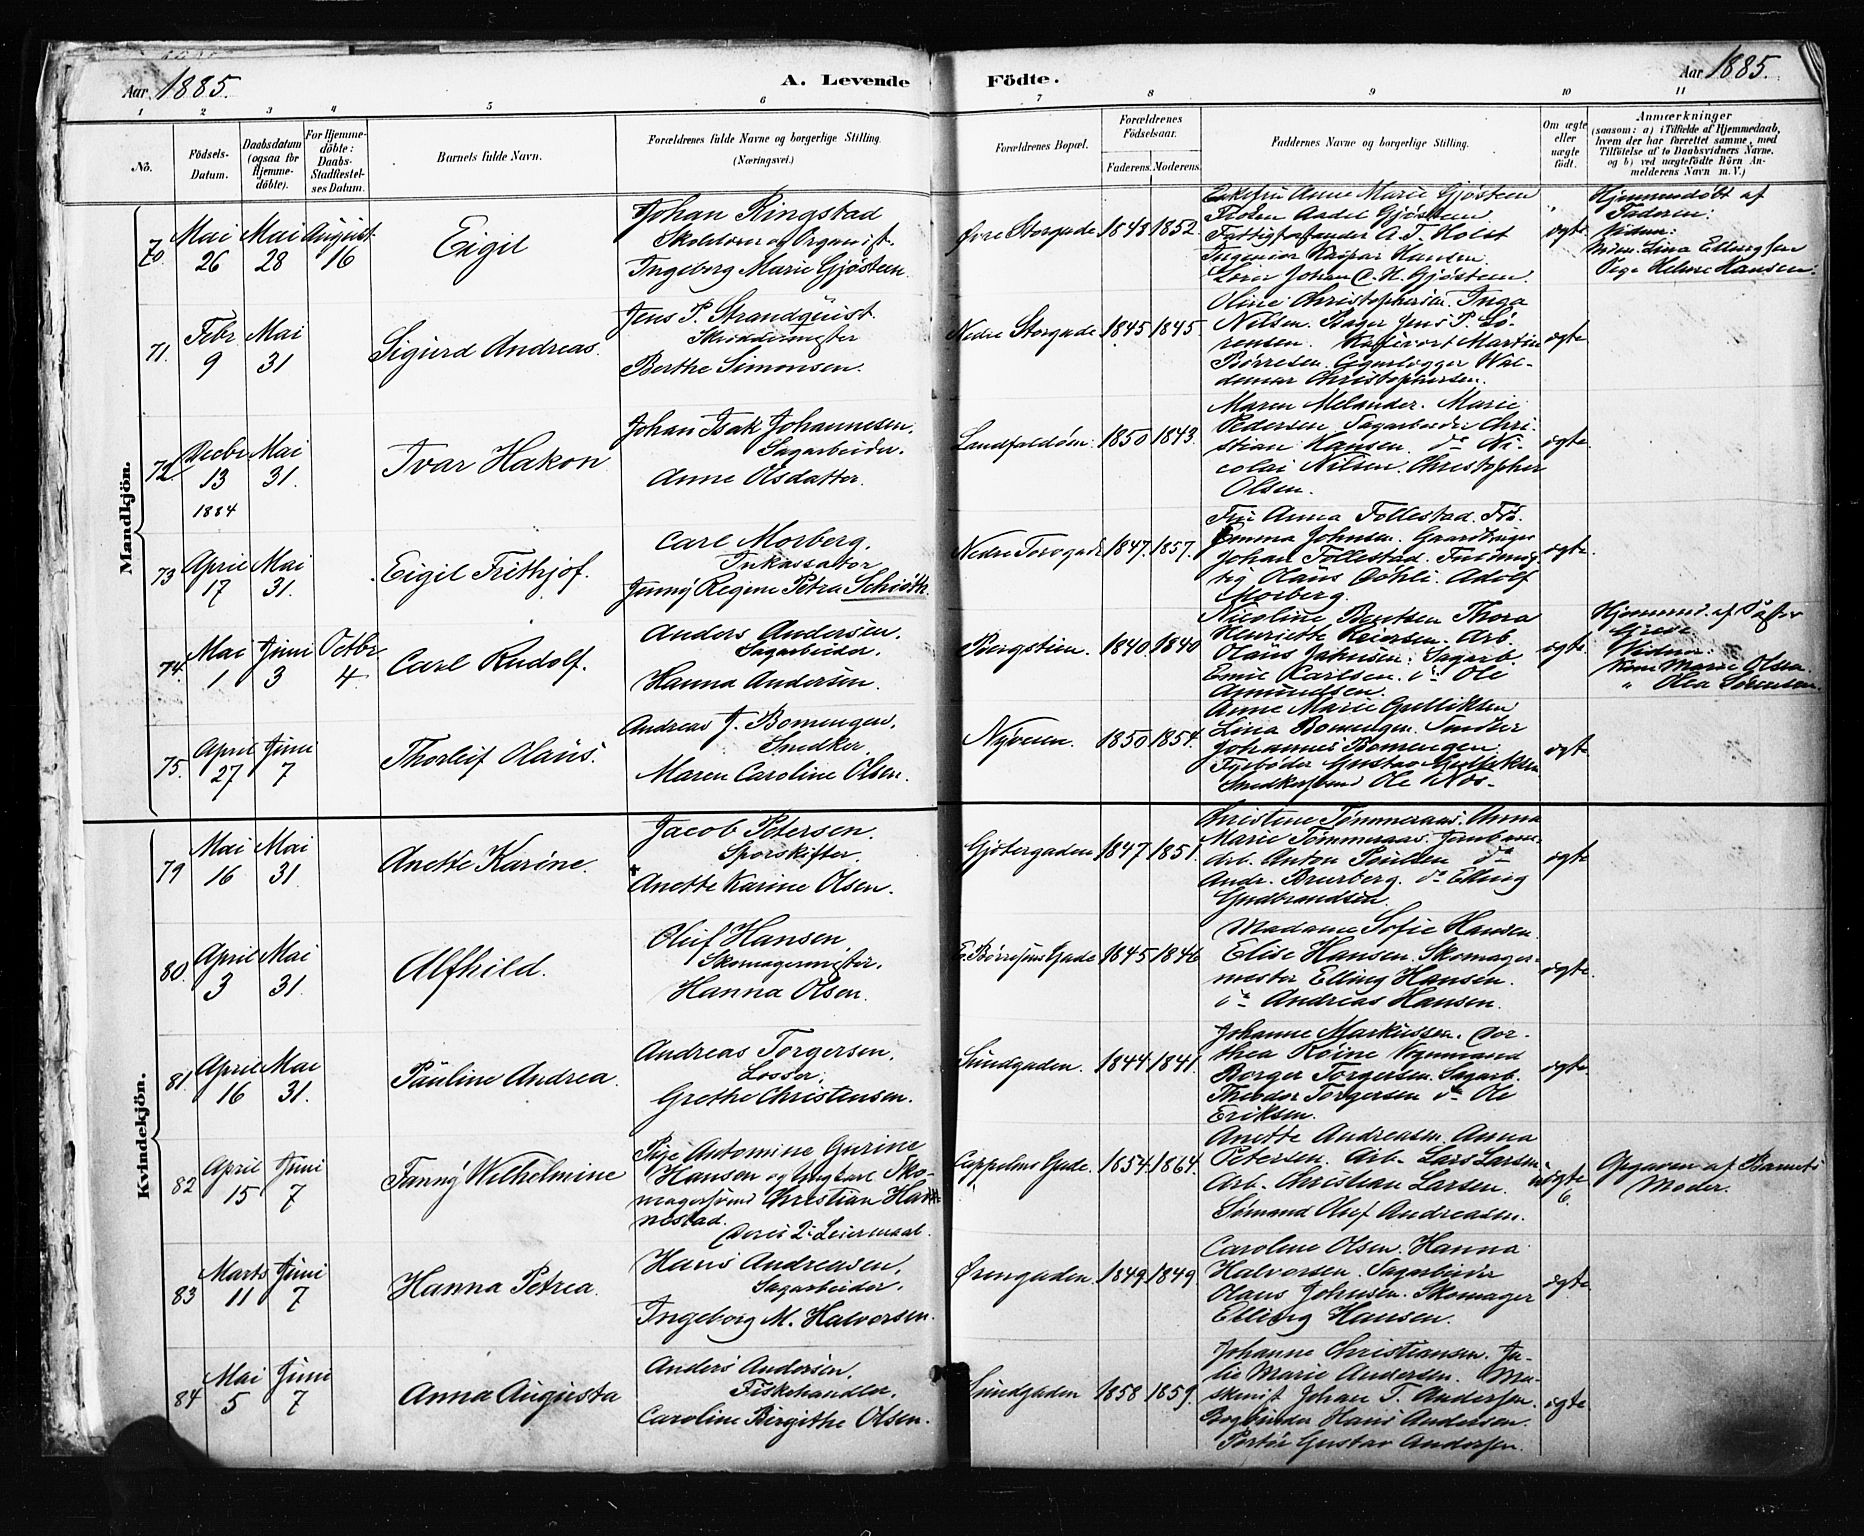 Aar 1885.
A. Levende
Födte.
Aar 1885.
1 2 3 4 5 6 7 8 9 10 11
No.
Födsels-
Datum.
Daabsdatum
(ogsaa for
Hjemme-
döbte).
For Hjemme-
döbte:
Daabs-
Stadfæstel-
ses Datum.
Barnets fulde Navn.
Forældrenes fulde Navne og borgerlige Stilling.
(Næringsvei.)
Forældrenes Bopæl.
Forældrenes
Födselsaar.
Faderens. Moderens.
Faddernes Navne og borgerlige Stilling.
Om ægte
eller
uægte
födt.
Anmærkninger
(saasom: a) i Tilfælde af Hjemmedaab,
hvem der har forrettet samme, med
Tilföielse af to Daabsvidners Navne,
og b) ved uægtefödte Börn An-
melderens Navn m. V.)
Mandkjön.
70
Mai
26
Mai
28
August
16
Eigil
Johan Ringstad
Skolelærer og Organist.
Ingeborg Marie Gjøsteen
Øvre Storgade
1848
1852.
Anne Marie Gjøsteen
Frøken Aadel Gjøsteen
Fattigforstander A. T. Holst
Ingeniør Kaspar Hansen
Lærer Johan C. H. Gjøsteen
ægte
Hjemmedøbt af
Faderen:
Vidner:
Lina Ellingsen
Pige Helene Hansen.
71.
Febr
9
Mai
31
Sigurd Andreas.
Jens P. Strandquist.
Skræddermester
Berthe Simonsen.
Nedre Storgade
1845
1845
Oline Christophersen. Inga
Nelsen. Bager Jens P. Sø-
rensen. Martin
Børresen. Cigarlægger Wal-
demar Christophersen.
ægte
72.
Decbr
13
1884
Mai
31.
Ivar Hakon
Johan Isak Johannesen.
Sagarbeider.
Anne Olsdatter.
Landfaldøen.
1850
1843.
Maren Melander. Marie
Pedersen. Sagarbeider Chri-
stian Hansen. do Ni-
colai Nilsen. Christopher
Olsen.
ægte.
73
April
17
Mai
31.
Eigil Frithjof.
Carl Morberg.
Inkassator
Jenny Regine Petra Schiøth.
Nedre Torvgade
1847.
1857.
Fru Anna Follestad. Frø.
Emma Johnsen. Gaardbruger
Johan Follestad.
Olaus Døhli. Adolf
Morberg.
ægte.
74.
Mai
1
Juni
3
Octbr
4.
Carl Rudolf.
Anders Andersen.
Sagarbeider.
Hanna Andersen.
Bergstien.
1840.
1840
Nicoline Bentsen Thora
Henriette Reiersen. Arb.
Olaus Johnsen. Sagarb.
Emil Karlsen. do Ole
Amundsen.
ægte.
Hjemmed. af
Vidner:
Marie Olsen.
" Olea Sørensen.
75.
April
27
Juni
7
Thorleif Olaus.
Andreas J. Bomengen.
Snedker.
Maren Caroline Olsen.
Nyveien.
1850
1854.
Anne Marie Gulliksen
Lina Bomengen. Snedker
Johannes Bomengen.
Fyrbøder Gustav Gulliksen
Snedkersvend Ole Næs.
ægte.
Kvindekjön.
79
Mai
16
Mai
31.
Anette Karine.
Jacob Petersen.
Sporskifter.
Anette Karine Olsen.
Gjetergaden
1847.
1851.
Christine Tømmeraas. Anna
Marie Tømmeraas. Jernbane-
arb. Anton Poulsen do
Andr. Bruberg. do Elling
Gudbrandsen.
ægte
80.
April
3
Mai
31.
Alfhild.
Oluf Hansen
Skomagermester.
Hanna Olsen.
E. Børresens Gade
1845
1846
Madame Sofie Hansen.
Elise Hansen. Skomager-
mester Elling Hansen.
do Andreas Hansen.
ægte.
81
April
16
Mai
31.
Pauline Andrea.
Andreas Torgersen.
Losser.
Grethe Christensen.
Sundgaden.
1844.
1841.
Johanne Markussen. Dor-
thea Røine Vognmand
Borger Torgersen. Sagarb.
Theodor Torgersen do Ole
Eriksen.
ægte.
82
April
15
Juni
7
Fanny Wilhelmine
Pige Antomine Gurine
Hansen og Ungkarl Sko-
magersvend Christian Har-
nestad.
Deres 2. Leiermaal.
Cappelens Gade.
1854.
1864.
Anette Andreasen. Anna
Petersen. Arb. Lars Larsen
Arb. Christian Larsen.
Sømand Oluf Andreasen.
uægte
6
Opgaven af Barnets
Moder.
83
Marts
11
Juni
7
Hanna Petrea.
Hans Andreasen.
Sagarbeider.
Ingeborg M. Halvorsen.
Ørengaden.
1849.
1849.
Caroline Olsen. Hanna
Halvorsen. Sagarbeider
Olaus Johnsen. Skomager
Elling Hansen.
ægte.
84
Mai
5
Juni
7
Anna Augusta
Anders Andersen.
Fiskehandler.
Caroline Birgithe Olsen.
Sundgaden
1858
1859.
Johanne Christiansen. Ju-
lie Marie Andersen. Ma-
skinist Johan T. Andersen.
Bogbinder Hans Andersen.
Portør Gustav Andersen.
ægte